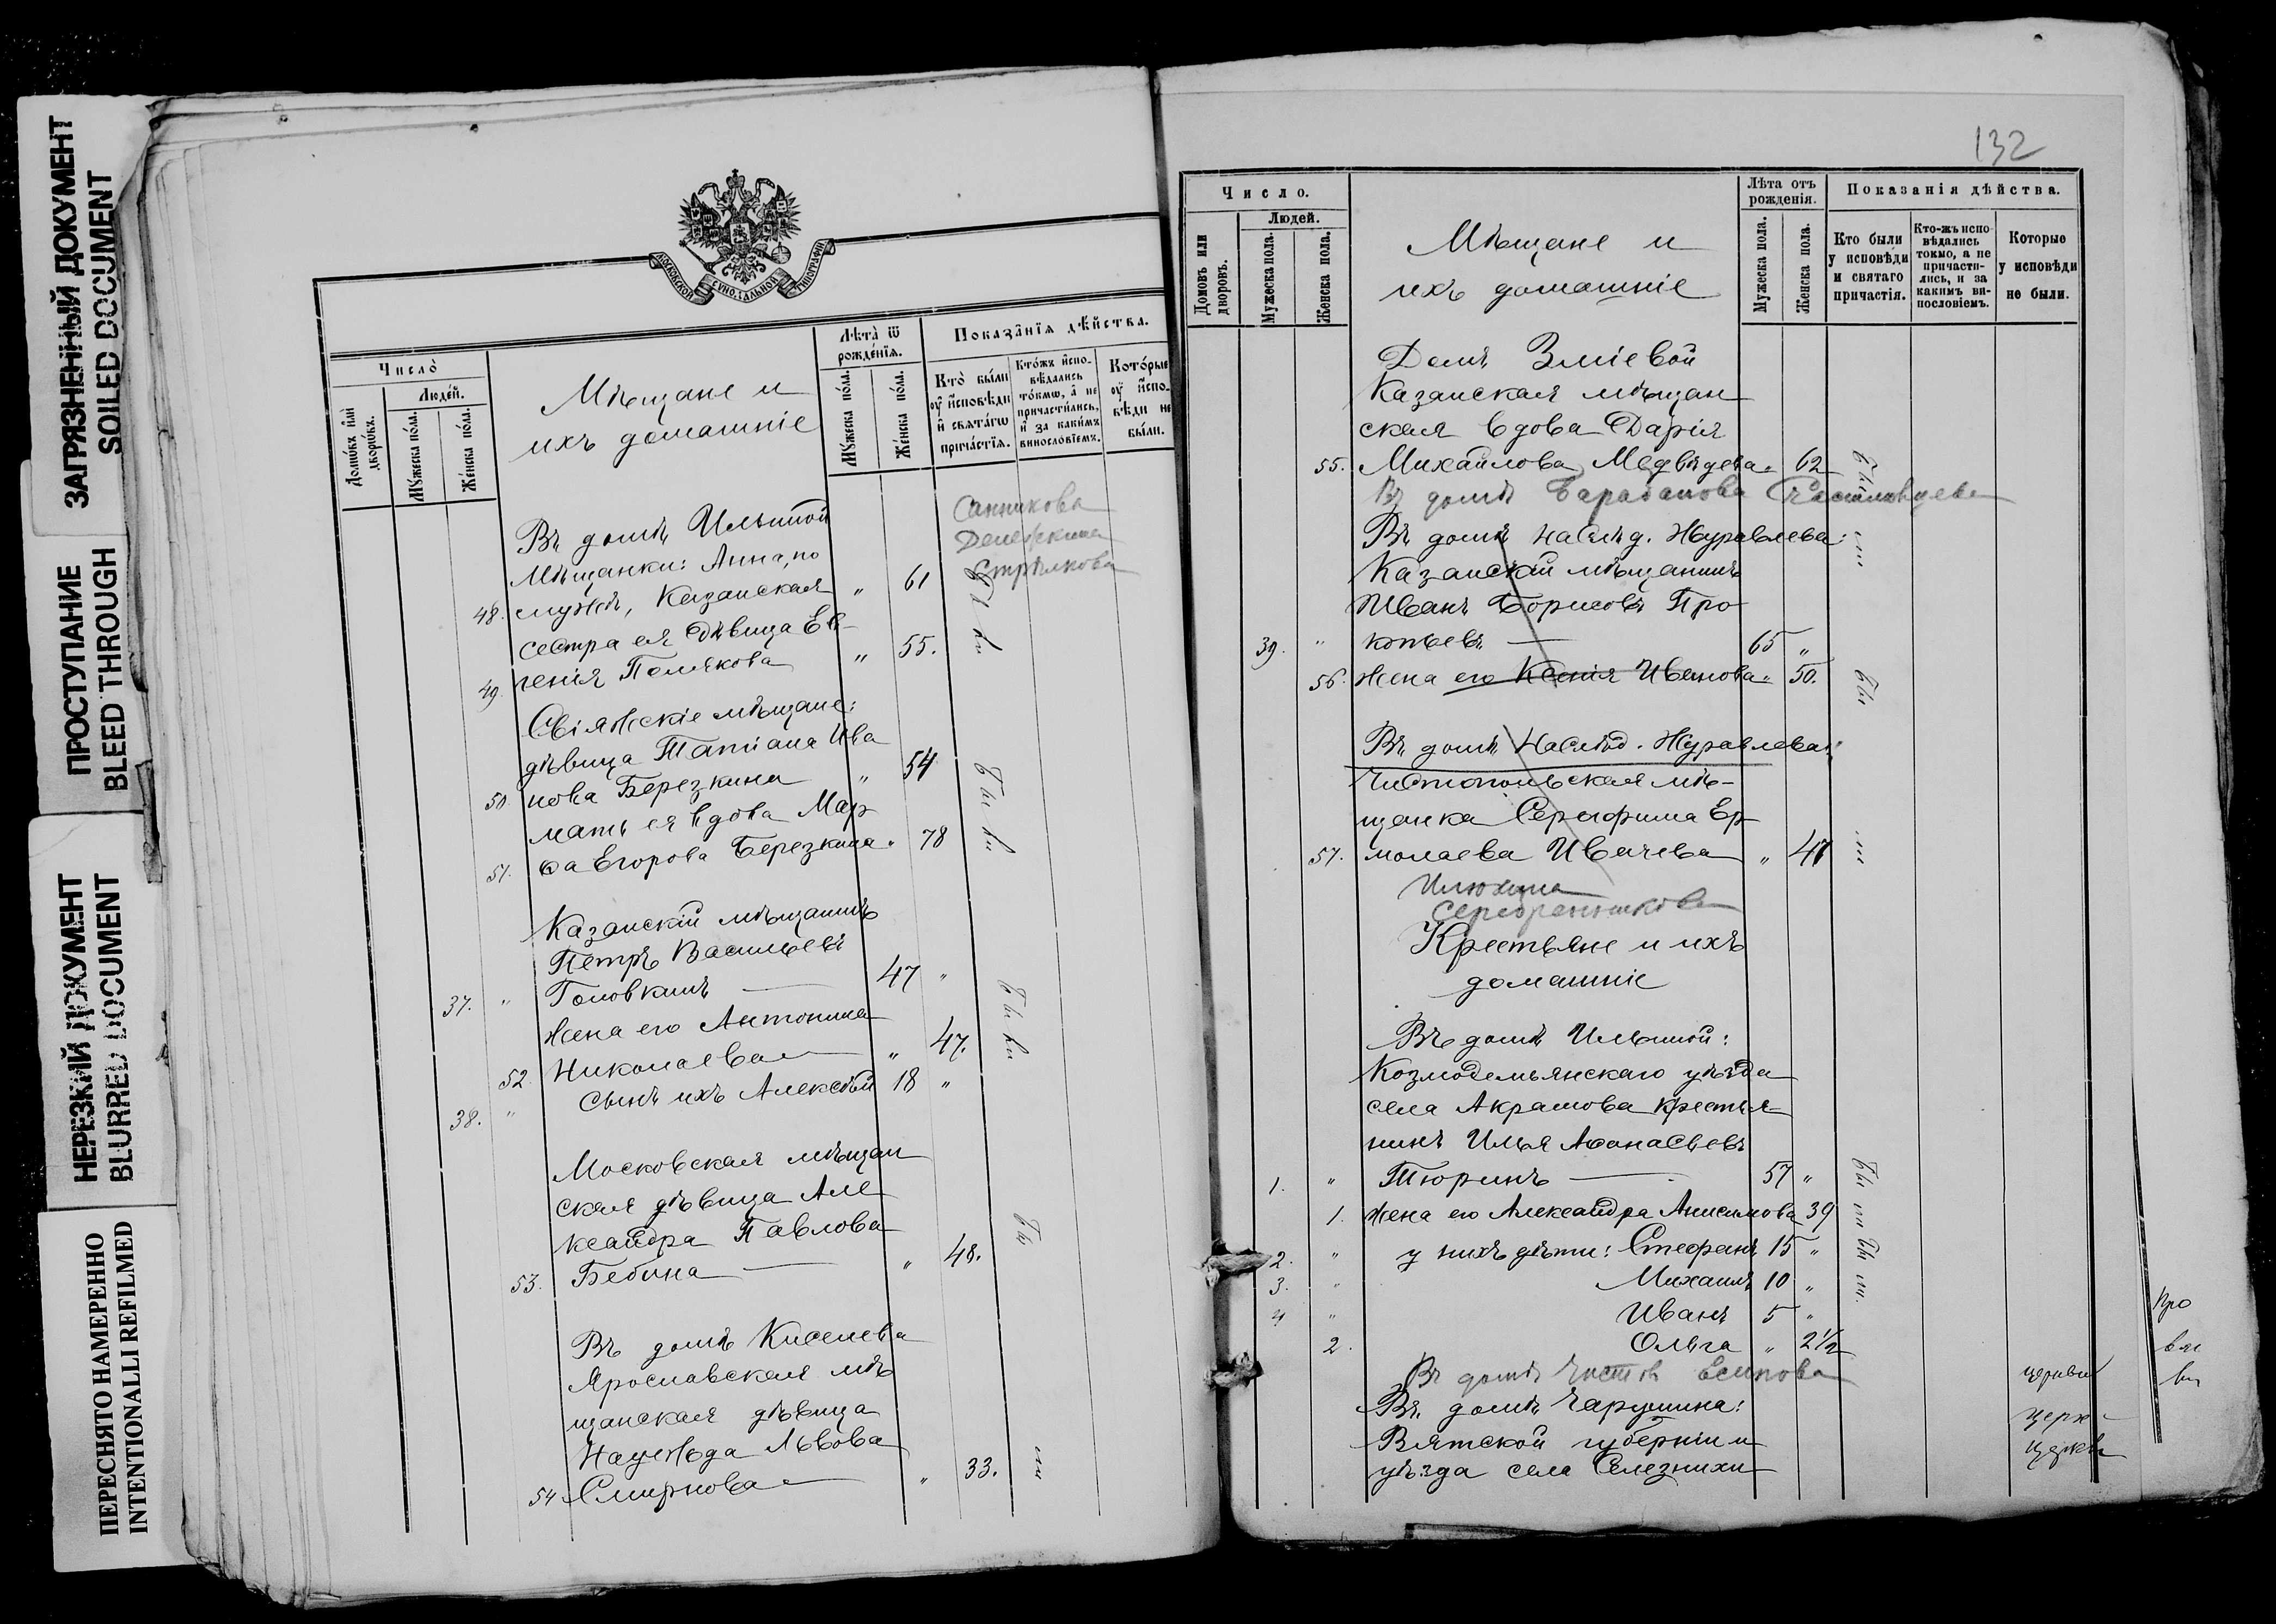 ЗАГРЯЗНЕННЫЙ ДОКУМЕНТ
SOILED DOCUMENT
ПРОСТУПАНИЕ
BLEED THROUGH
НЕРЕЗКИЙ ДОКУМЕНТ
BLURRED DOCUMENT
ПЕРЕСНЯТО НАМЕРЕННО
INTENTIONALLI REFILMED
МОСКОВСКОЙ СѴНОДАЛЬНОЙ ТИПОГРАФІИ
Число̀
Домѡ́въ и҆лѝ дворѡ́въ.
Люде́й.
Мꙋ́жеска по́ла.
Же́нска по́ла.
Мѣщане и
ихъ домашніе
Лѣ́та ѿ рожде́нїѧ.
Мꙋ́жеска по́ла.
Же́нска по́ла.
Показа̑нїѧ дѣ́йства.
Кто̀ бы́ли оу҆ и҆сповѣ́ди и҆ свѧта́гѡ прича́стїѧ.
Кто́жъ и҆спо-
вѣ́дались то́кмѡ, а҆ не причасти́лись, и҆ за каки́мъ винословїемъ.
Кото́рые оу҆ и҆спо-
вѣ́ди не бы́ли.
Въ домѣ Ильиной
Санникова
Мѣщанки: Анна, по
Денежкина
48. мужѣ, Казанская " 61
Стрѣлкова
сестра ея дѣвица Ев-
49. генія Полякова " 55.
Свіяжскіе мѣщане:
дѣвица Татіана Ива
50. нова Березкина " 54
мать ея вдова Мар
51. ѳа Егорова Березкина " 78
Казанскій мѣщанинъ
Петръ Васильевъ
37. " Головкинъ — 47 "
жена его Антонина
52. Николаева — " 47.
38. " сынъ ихъ Алексѣй 18 "
Московская мѣщан
ская дѣвица Але
ксандра Павлова
53. Бебина — " 48.
Въ домѣ Киселева
Ярославская мѣ
щанская дѣвица
Надежда Львова
54 Смирнова — " 33.
132
Число.
Домовъ или дворовъ.
Людей.
Мужеска пола.
Женска пола.
Мѣщане и
ихъ домашніе
Лѣта отъ рожденія.
Мужеска пола.
Женска пола.
Показанія дѣйства.
Кто были у исповѣди и святаго причастія.
Кто-жъ испо-
вѣдались токмо, а не причасти-
лись, и за какимъ ви-
нословіемъ.
Которые у исповѣди не были.
Домъ Зміевой
Казанская мѣщан
ская вдова Дарія
55. Михайлова Медвѣдева " 62
Въ домѣ Барабанова
Въ домѣ наслѣд. Журавлева:
Казанскій мѣщанинъ
Иванъ Борисовъ Про
39. " копьевъ — 65 "
56. жена его Ксенія Иванова " 50.
Въ домѣ Наслѣд. Журавлева:
Чистопольская мѣ-
щанка Серафима Ер
57. молаева Ивачева " 47
Илюхина
Серебренникова
Крестьяне и ихъ
домашніе
Въ домѣ Ильиной:
Козмодемьянскаго уѣзда
села Акрамова крестья
нинъ Илья Аѳанасьевъ
1. " Тюринъ — 57 "
1. жена его Александра Анисимова 39
2. " у нихъ дѣти: Стефанъ 15 "
3. " Михаилъ 10 "
4 " Иванъ 5 "
2. Ольга " 2 1/2
Въ домѣ Есипова
Въ домѣ Чарушина:
Вятской губерніи и
уѣзда села Селезнихи